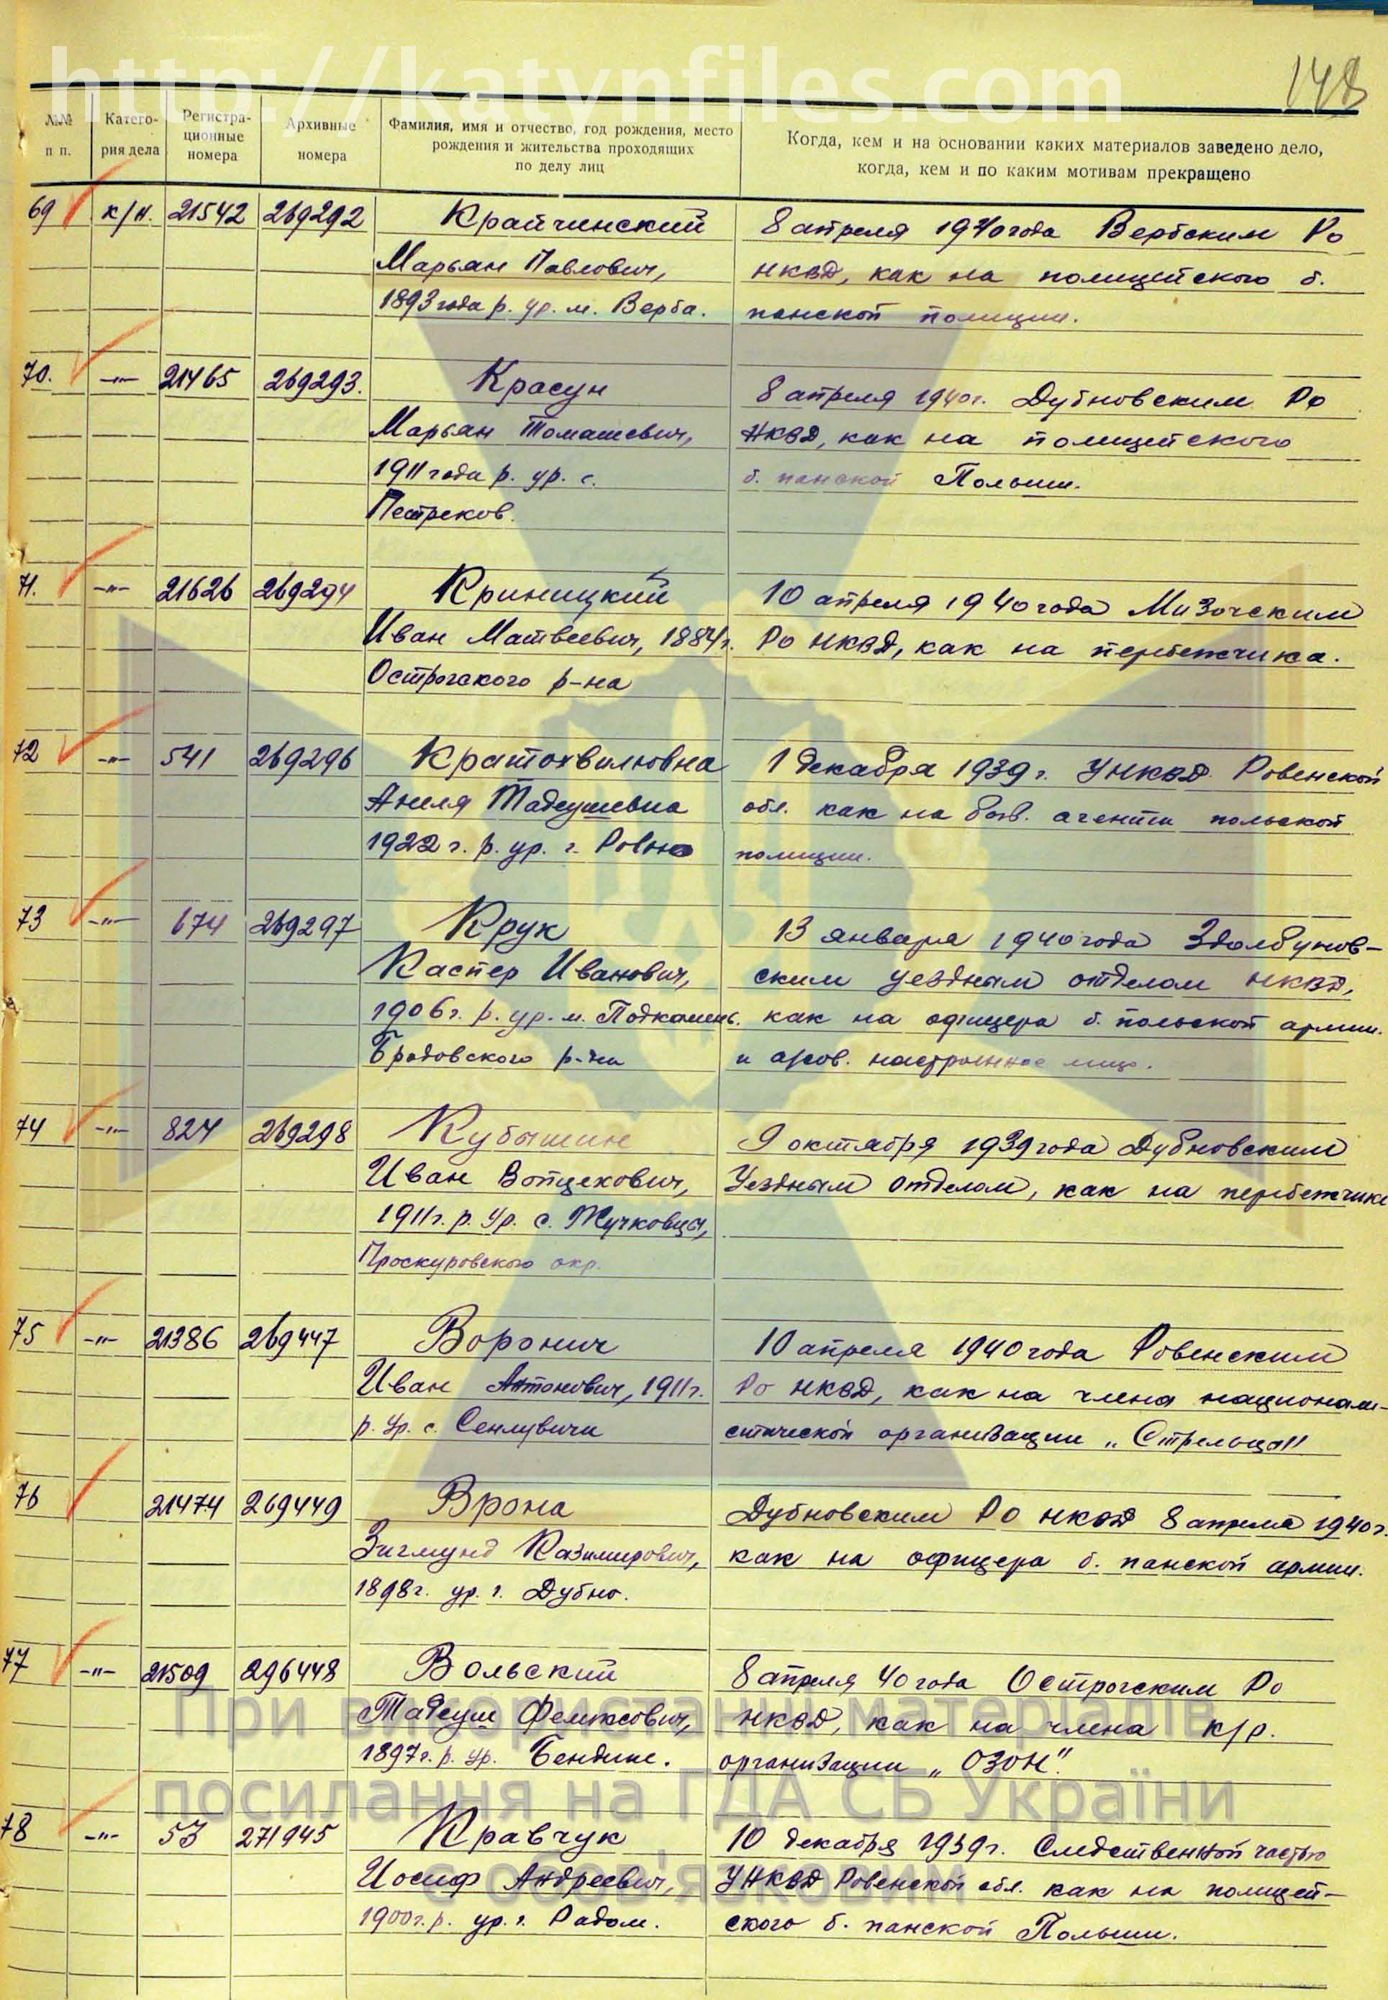 http://katynfiles.com
148
№№ п п.
Катего-
рия дела
Регистра-
ционные
номера
Архивные
номера
Фамилия, имя и отчество, год рождения, место
рождения и жительства проходящих
по делу лиц
Когда, кем и на основании каких материалов заведено дело,
когда, кем и по каким мотивам прекращено
69 к/н. 21542 269292 Крайчинский 8 апреля 1940 года Вербским Ро
Марьян Павлович, НКВД, как на полицейского б.
1893 года р. ур. м. Верба. панской полиции.
70. —"— 21465 269293. Красун 8 апреля 1940г. Дубновским Ро
Марьян Томашевич, НКВД, как на полицейского
1911 года р. ур. с. б. панской Польши.
Пестреков.
71. —"— 21626 269294 Криницкий 10 апреля 1940 года Мизочским
Иван Матвеевич, 1884г. Ро НКВД, как на перебежчика.
Острогского р-на
72 —"— 541 269296 Кратохвилювна 1 декабря 1939 г. УНКВД Ровенской
Анеля Тадеушевна обл. как на быв. агента польской
1922 г. р. ур. г. Ровно полиции.
73 —"— 674 269297 Крук 13 января 1940 года Здолбунов-
Каспер Иванович, ским уездным отделом НКВД,
1906г. р. ур. м. Подкамень. как на офицера б. польской армии.
Бродовского р-на и а/сов. настроенное лицо.
74 —"— 824 269298 Кубышин 9 октября 1939 года Дубновским
Иван Войцехович, Уездным отделом, как на перебежчика
1911г. р. ур. с. Жучковцы,
Проскуровского окр.
75 —"— 21386 269447 Воронич 10 апреля 1940 года Ровенским
Иван Антонович, 1911г. Ро НКВД, как на члена национали-
р. ур. с. Сенлувичи стической организации „Стрельца"
76 21474 269449 Врона Дубновским РО НКВД 8 апреля 1940г.
Зигмунд Казимирович, как на офицера б. панской армии.
1898г. ур. г. Дубно.
77 —"— 21509 296448 Вольский 8 апреля 40 года Острогским Ро
Тадеуш Феликсович, НКВД, как на члена к/р.
1897г. р. ур. Бендине. организации „ОЗОН".
78 —"— 53 271945 Кравчук 10 декабря 1939г. Следственной частью
Иосиф Андреевич, УНКВД Ровенской обл. как на полицей-
1900г. р. ур. г. Радом. ского б. панской Польши.
При використанні матеріалів
посилання на ГДА СБ України
є обов'язковим